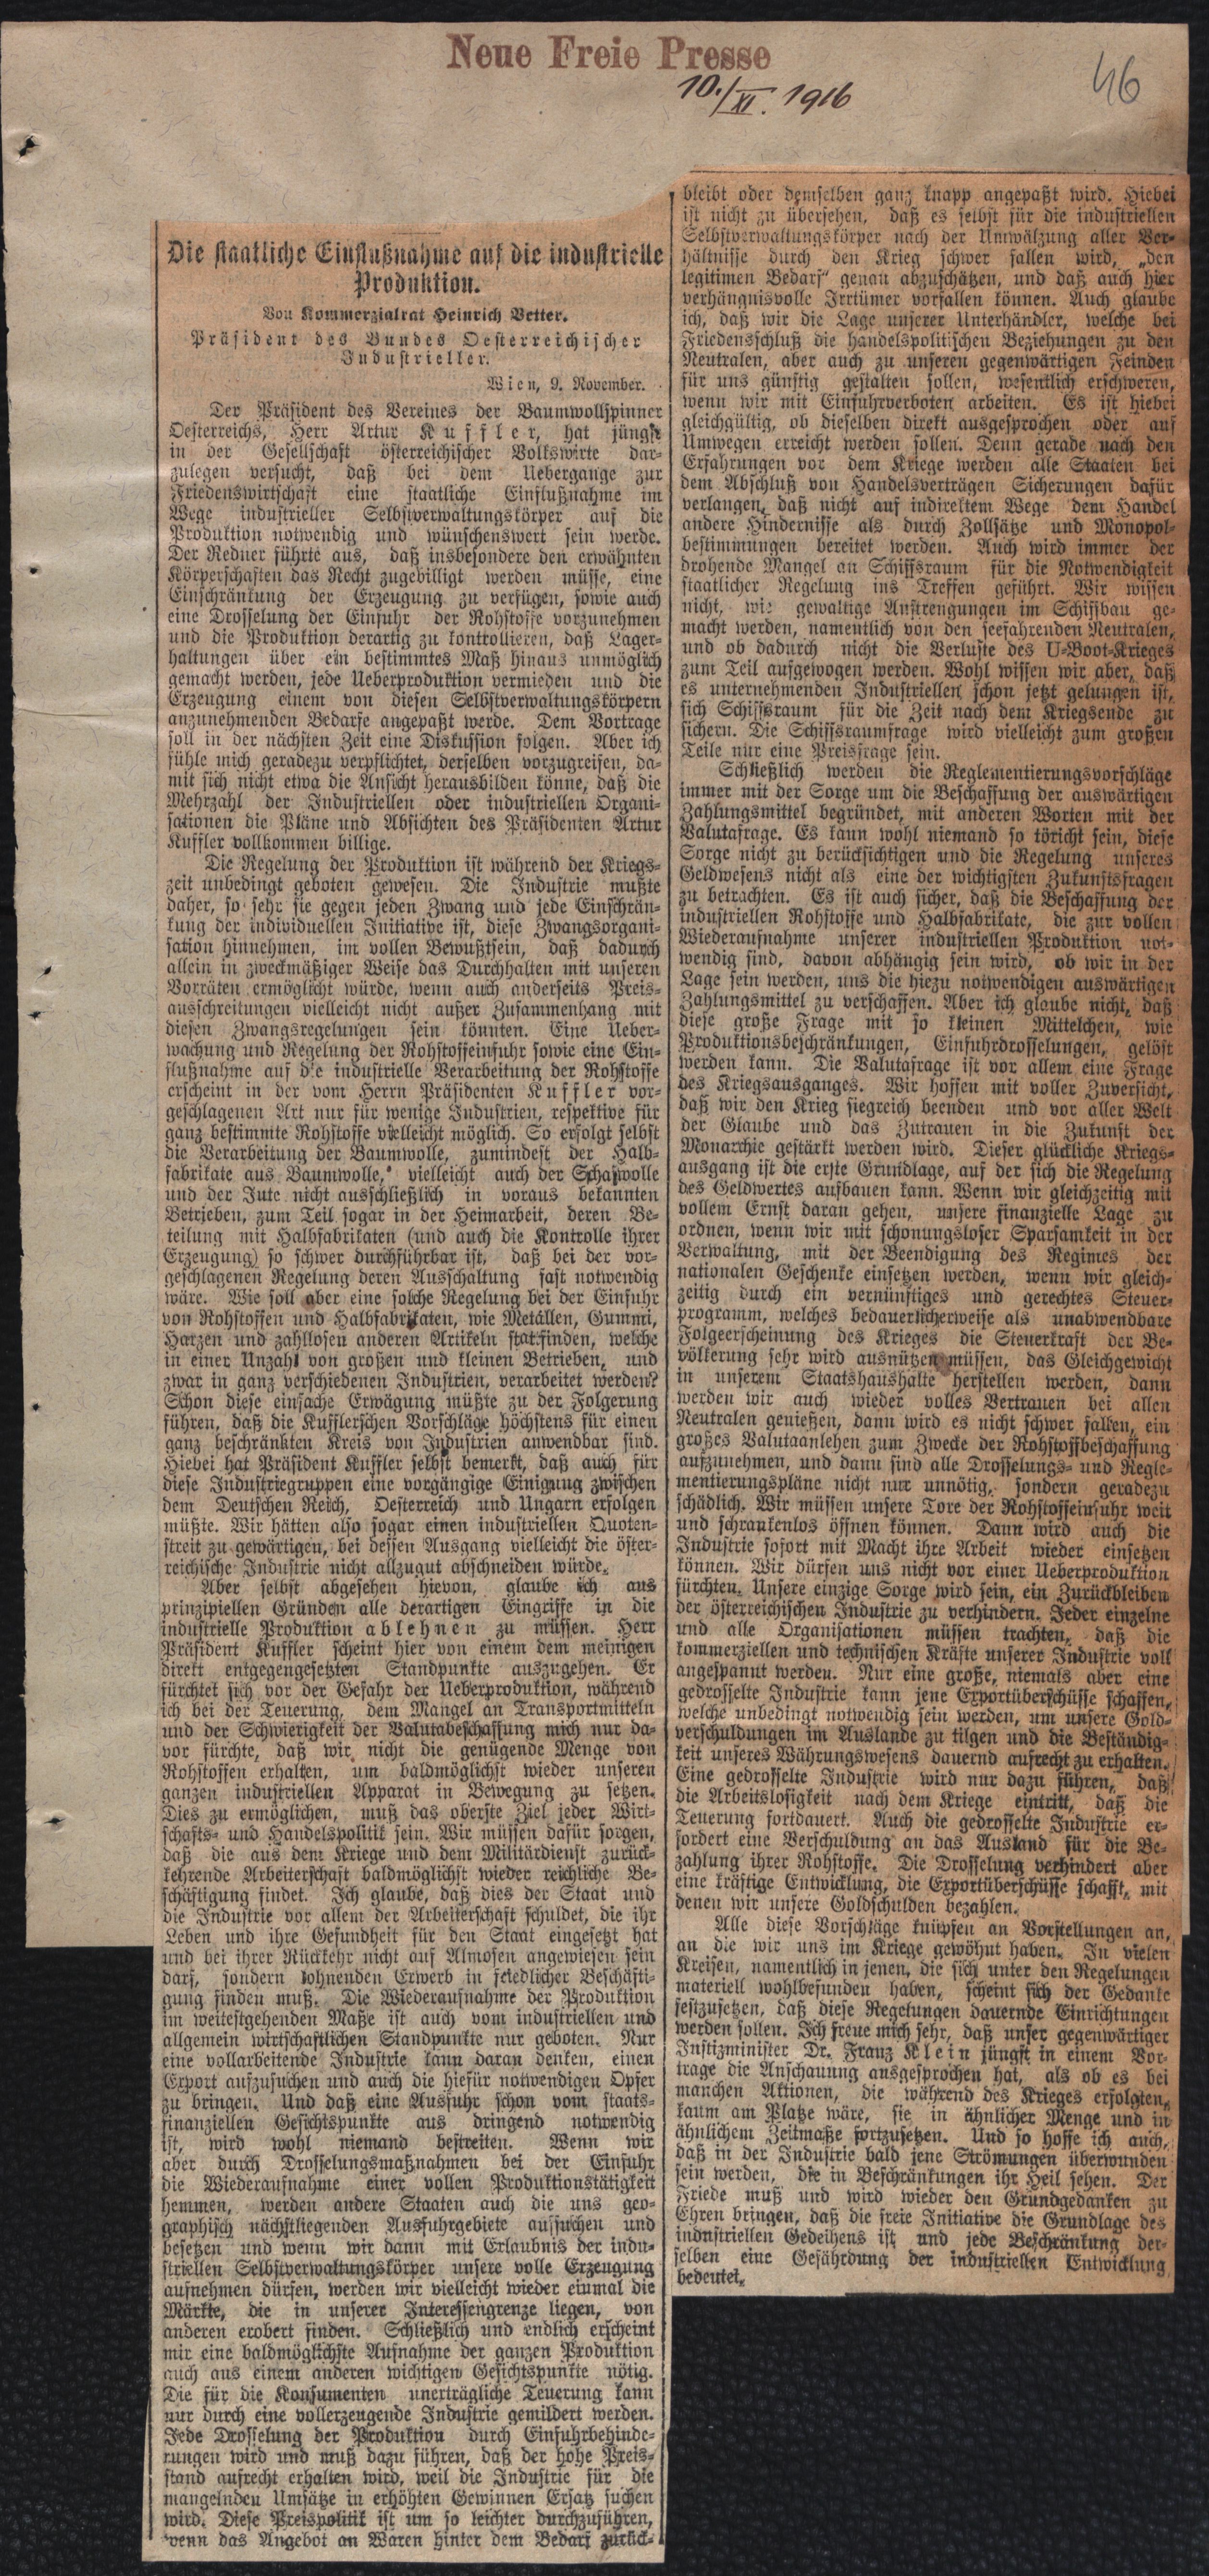 Neue Freie Presse
10./XI. 1916
46
Die staatliche Einflußnahme auf die industrielle
Produktion.
Von Kommerzialrat Heinrich Vetter.
Präsident des Bundes Oesterreichischer
Industrieller.
Wien, 9. November.
Der Präsident des Vereines der Baumwollspinner
Oesterreichs, Herr Artur Kuffler, hat jüngst
in der Gesellschaft österreichischer Volkswirte dar-
zulegen versucht, daß bei dem Uebergange zur
Friedenswirtschaft eine staatliche Einflußnahme im
Wege industrieller Selbstverwaltungskörper auf die
Produktion notwendig und wünschenswert sein werde.
Der Redner führte aus, daß insbesondere den erwähnten
Körperschaften das Recht zugebilligt werden müsse, eine
Einschränkung der Erzeugung zu verfügen, sowie auch
eine Drosselung der Einfuhr der Rohstoffe vorzunehmen
und die Produktion derartig zu kontrollieren, daß Lager-
haltungen über ein bestimmtes Maß hinaus unmöglich
gemacht werden, jede Ueberproduktion vermieden und die
Erzeugung einem von diesen Selbstverwaltungskörpern
anzunehmenden Bedarfe angepaßt werde. Dem Vortrage
soll in der nächsten Zeit eine Diskussion folgen. Aber ich
fühle mich geradezu verpflichtet, derselben vorzugreifen, da-
mit sich nicht etwa die Ansicht herausbilden könne, daß die
Mehrzahl der Industriellen oder industriellen Organi-
sationen die Pläne und Absichten des Präsidenten Artur
Kuffler vollkommen billige.
Die Regelung der Produktion ist während der Kriegs-
zeit unbedingt geboten gewesen. Die Industrie mußte
daher, so sehr sie gegen jeden Zwang und jede Einschrän-
kung der individuellen Initiative ist, diese Zwangsorgani-
sation hinnehmen, im vollen Bewußtsein, daß dadurch
allein in zweckmäßiger Weise das Durchhalten mit unseren
Vorräten ermöglicht würde, wenn auch anderseits Preis-
ausschreitungen vielleicht nicht außer Zusammenhang mit
diesen Zwangsregelungen sein könnten. Eine Ueber-
wachung und Regelung der Rohstoffeinfuhr sowie eine Ein-
flußnahme auf die industrielle Verarbeitung der Rohstoffe
erscheint in der vom Herrn Präsidenten Kuffler vor-
geschlagenen Art nur für wenige Industrien, respektive für
ganz bestimmte Rohstoffe vielleicht möglich. So erfolgt selbst
die Verarbeitung der Baumwolle, zumindest der Halb-
fabrikate aus Baumwolle, vielleicht auch der Schafwolle
und der Jute nicht ausschließlich in voraus bekannten
Betrieben, zum Teil sogar in der Heimarbeit, deren Be-
teilung mit Halbfabrikaten (und auch die Kontrolle ihrer
Erzeugung) so schwer durchführbar ist, daß bei der vor-
geschlagenen Regelung deren Ausschaltung fast notwendig
wäre. Wie soll aber eine solche Regelung bei der Einfuhr
von Rohstoffen und Halbfabrikaten, wie Metallen, Gummi,
Harzen und zahllosen anderen Artikeln stattfinden, welche
in einer Unzahl von großen und kleinen Betrieben, und
zwar in ganz verschiedenen Industrien, verarbeitet werden?
Schon diese einfache Erwägung müßte zu der Folgerung
führen, daß die Kufflerschen Vorschläge höchstens für einen
ganz beschränkten Kreis von Industrien anwendbar sind.
Hiebei hat Präsident Kuffler selbst bemerkt, daß auch für
diese Industriegruppen eine vorgängige Einigung zwischen
dem Deutschen Reich, Oesterreich und Ungarn erfolgen
müßte. Wir hätten also sogar einen industriellen Quoten-
streit zu gewärtigen, bei dessen Ausgang vielleicht die öster-
reichische Industrie nicht allzugut abschneiden würde.
Aber selbst abgesehen hievon, glaube ich aus
prinzipiellen Gründen alle derartigen Eingriffe in die
industrielle Produktion ablehnen zu müssen. Herr
Präsident Kuffler scheint hier von einem dem meinigen
direkt entgegengesetzten Standpunkte auszugehen. Er
fürchtet sich vor der Gefahr der Ueberproduktion, während
ich bei der Teuerung, dem Mangel an Transportmitteln
und der Schwierigkeit der Valutabeschaffung mich nur da-
vor fürchte, daß wir nicht die genügende Menge von
Rohstoffen erhalten, um baldmöglichst wieder unseren
ganzen industriellen Apparat in Bewegung zu setzen.
Dies zu ermöglichen, muß das oberste Ziel jeder Wirt-
schafts- und Handelspolitik sein. Wir müssen dafür sorgen,
daß die aus dem Kriege und dem Militärdienst zurück-
kehrende Arbeiterschaft baldmöglichst wieder reichliche Be-
schäftigung findet. Ich glaube, daß dies der Staat und
die Industrie vor allem der Arbeiterschaft schuldet, die ihr
Leben und ihre Gesundheit für den Staat eingesetzt hat
und bei ihrer Rückkehr nicht auf Almosen angewiesen sein
darf, sondern lohnenden Erwerb in friedlicher Beschäfti-
gung finden muß. Die Wiederaufnahme der Produktion
im weitestgehenden Maße ist auch vom industriellen und
allgemein wirtschaftlichen Standpunkte nur geboten. Nur
eine vollarbeitende Industrie kann daran denken, einen
Export aufzusuchen und auch die hiefür notwendigen Opfer
zu bringen. Und daß eine Ausfuhr schon vom staats-
finanziellen Gesichtspunkte aus dringend notwendig
ist, wird wohl niemand bestreiten. Wenn wir
aber durch Drosselungsmaßnahmen bei der Einfuhr
die Wiederaufnahme einer vollen Produktionstätigkeit
hemmen, werden andere Staaten auch die uns geo-
graphisch nächstliegenden Ausfuhrgebiete aufsuchen und
besetzen und wenn wir dann mit Erlaubnis der indu-
striellen Selbstverwaltungskörper unsere volle Erzeugung
aufnehmen dürfen, werden wir vielleicht wieder einmal die
Märkte, die in unserer Interessengrenze liegen, von
anderen erobert finden. Schließlich und endlich erscheint
mir eine baldmöglichste Aufnahme der ganzen Produktion
auch aus einem anderen wichtigen Gesichtspunkte nötig.
Die für die Konsumenten unerträgliche Teuerung kann
nur durch eine vollerzeugende Industrie gemildert werden.
Jede Drosselung der Produktion durch Einfuhrbehinde-
rungen wird und muß dazu führen, daß der hohe Preis-
stand aufrecht erhalten wird, weil die Industrie für die
mangelnden Umsätze in erhöhten Gewinnen Ersatz suchen
wird. Diese Preispolitik ist um so leichter durchzuführen,
wenn das Angebot an Waren hinter dem Bedarf zurück-
bleibt oder demselben ganz knapp angepaßt wird. Hiebei
ist nicht zu übersehen, daß es selbst für die industriellen
Selbstverwaltungskörper nach der Umwälzung aller Ver-
hältnisse durch den Krieg schwer fallen wird, „den
legitimen Bedarf“ genau abzuschätzen, und daß auch hier
verhängnisvolle Irrtümer vorfallen können. Auch glaube
ich, daß wir die Lage unserer Unterhändler, welche bei
Friedensschluß die handelspolitischen Beziehungen zu den
Neutralen, aber auch zu unseren gegenwärtigen Feinden
für uns günstig gestalten sollen, wesentlich erschweren,
wenn wir mit Einfuhrverboten arbeiten. Es ist hiebei
gleichgültig, ob dieselben direkt ausgesprochen oder auf
Umwegen erreicht werden sollen. Denn gerade nach den
Erfahrungen vor dem Kriege werden alle Staaten bei
dem Abschluß von Handelsverträgen Sicherungen dafür
verlangen, daß nicht auf indirektem Wege dem Handel
andere Hindernisse als durch Zollsätze und Monopol-
bestimmungen bereitet werden. Auch wird immer der
drohende Mangel an Schiffsraum für die Notwendigkeit
staatlicher Regelung ins Treffen geführt. Wir wissen
nicht, wie gewaltige Anstrengungen im Schiffbau ge-
macht werden, namentlich von den seefahrenden Neutralen,
und ob dadurch nicht die Verluste des U-Boot-Krieges
zum Teil aufgewogen werden. Wohl wissen wir aber, daß
es unternehmenden Industriellen schon jetzt gelungen ist,
sich Schiffsraum für die Zeit nach dem Kriegsende zu
sichern. Die Schiffsraumfrage wird vielleicht zum großen
Teile nur eine Preisfrage sein.
Schließlich werden die Reglementierungsvorschläge
immer mit der Sorge um die Beschaffung der auswärtigen
Zahlungsmittel begründet, mit anderen Worten mit der
Valutafrage. Es kann wohl niemand so töricht sein, diese
Sorge nicht zu berücksichtigen und die Regelung unseres
Geldwesens nicht als eine der wichtigsten Zukunftsfragen
zu betrachten. Es ist auch sicher, daß die Beschaffung der
industriellen Rohstoffe und Halbfabrikate, die zur vollen
Wiederaufnahme unserer industriellen Produktion not-
wendig sind, davon abhängig sein wird, ob wir in der
Lage sein werden, uns die hiezu notwendigen auswärtigen
Zahlungsmittel zu verschaffen. Aber ich glaube nicht, daß
diese große Frage mit so kleinen Mittelchen, wie
Produktionsbeschränkungen, Einfuhrdrosselungen, gelöst
werden kann. Die Valutafrage ist vor allem eine Frage
des Kriegsausganges. Wir hoffen mit voller Zuversicht,
daß wir den Krieg siegreich beenden und vor aller Welt
der Glaube und das Zutrauen in die Zukunft der
Monarchie gestärkt werden wird. Dieser glückliche Kriegs-
ausgang ist die erste Grundlage, auf der sich die Regelung
des Geldwertes aufbauen kann. Wenn wir gleichzeitig mit
vollem Ernst daran gehen, unsere finanzielle Lage zu
ordnen, wenn wir mit schonungsloser Sparsamkeit in der
Verwaltung, mit der Beendigung des Regimes der
nationalen Geschenke einsetzen werden, wenn wir gleich-
zeitig durch ein vernünftiges und gerechtes Steuer-
programm, welches bedauerlicherweise als unabwendbare
Folgeerscheinung des Krieges die Steuerkraft der Be-
völkerung sehr wird ausnützen müssen, das Gleichgewicht
in unserem Staatshaushalte herstellen werden, dann
werden wir auch wieder volles Vertrauen bei allen
Neutralen genießen, dann wird es nicht schwer fallen, ein
großes Valutaanlehen zum Zwecke der Rohstoffbeschaffung
aufzunehmen, und dann sind alle Drosselungs- und Regle-
mentierungspläne nicht nur unnötig, sondern geradezu
schädlich. Wir müssen unsere Tore der Rohstoffeinfuhr weit
und schrankenlos öffnen können. Dann wird auch die
Industrie sofort mit Macht ihre Arbeit wieder einsetzen
können. Wir dürfen uns nicht vor einer Ueberproduktion
fürchten. Unsere einzige Sorge wird sein, ein Zurückbleiben
der österreichischen Industrie zu verhindern. Jeder einzelne
und alle Organisationen müssen trachten, daß die
kommerziellen und technischen Kräfte unserer Industrie voll
angespannt werden. Nur eine große, niemals aber eine
gedrosselte Industrie kann jene Exportüberschüsse schaffen,
welche unbedingt notwendig sein werden, um unsere Gold-
verschuldungen im Auslande zu tilgen und die Beständig-
keit unseres Währungswesens dauernd aufrecht zu erhalten.
Eine gedrosselte Industrie wird nur dazu führen, daß
die Arbeitslosigkeit nach dem Kriege eintritt, daß die
Teuerung fortdauert. Auch die gedrosselte Industrie er-
fordert eine Verschuldung an das Ausland für die Be-
zahlung ihrer Rohstoffe. Die Drosselung verhindert aber
eine kräftige Entwicklung, die Exportüberschüsse schafft, mit
denen wir unsere Goldschulden bezahlen.
Alle diese Vorschläge knüpfen an Vorstellungen an,
an die wir uns im Kriege gewöhnt haben. In vielen
Kreisen, namentlich in jenen, die sich unter den Regelungen
materiell wohlbefunden haben, scheint sich der Gedanke
festzusetzen, daß diese Regelungen dauernde Einrichtungen
werden sollen. Ich freue mich sehr, daß unser gegenwärtiger
Justizminister Dr. Franz Klein jüngst in einem Vor-
trage die Anschauung ausgesprochen hat, als ob es bei
manchen Aktionen, die während des Krieges erfolgten,
kaum am Platze wäre, sie in ähnlicher Menge und in
ähnlichem Zeitmaße fortzusetzen. Und so hoffe ich auch,
daß in der Industrie bald jene Strömungen überwunden
sein werden, die in Beschränkungen ihr Heil sehen. Der
Friede muß und wird wieder den Grundgedanken zu
Ehren bringen, daß die freie Initiative die Grundlage des
industriellen Gedeihens ist und jede Beschränkung der-
selben eine Gefährdung der industriellen Entwicklung
bedeutet.